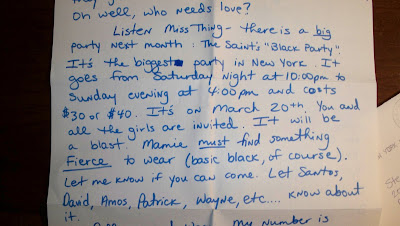 Oh well, who needs love?
Listen Miss Thing - there is a big
party next month : The Saint's "Black Party".
It's the biggest party in New York. It
goes from Saturday night at 10:00pm to
Sunday evening at 4:00pm and costs
$30 or $40. It's on March 20th. You and
all the girls are invited. It will be
a blast. Mamie must find something
Fierce to wear (basic black, of course).
Let me know if you can come. Let Santos,
David, Amos, Patrick, Wayne, etc.... know about
it.
My number is